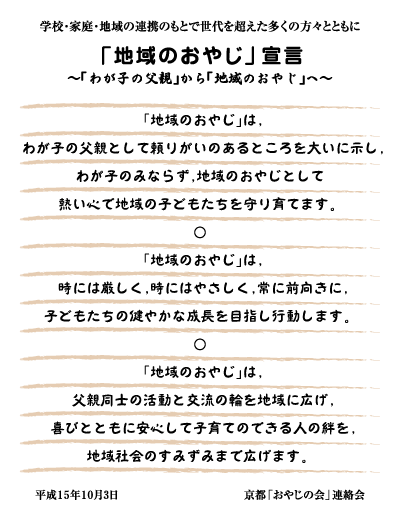 学校・家庭・地域の連携のもとで世代を超えた多くの方々とともに
「地域のおやじ」宣言
～「わが子の父親」から「地域のおやじ」へ～
「地域のおやじ」は,
わが子の父親として頼りがいのあるところを大いに示し,
わが子のみならず,地域のおやじとして
熱い心で地域の子どもたちを守り育てます。
○
「地域のおやじ」は,
時には厳しく,時にはやさしく,常に前向きに,
子どもたちの健やかな成長を目指し行動します。
○
「地域のおやじ」は,
父親同士の活動と交流の輪を地域に広げ,
喜びとともに安心して子育てのできる人の絆を,
地域社会のすみずみまで広げます。
平成15年10月3日 京都「おやじの会」連絡会